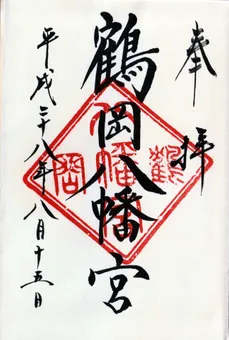 奉拝
鶴岡八幡宮
平成二十八年八月十五日
鶴岡
八幡宮